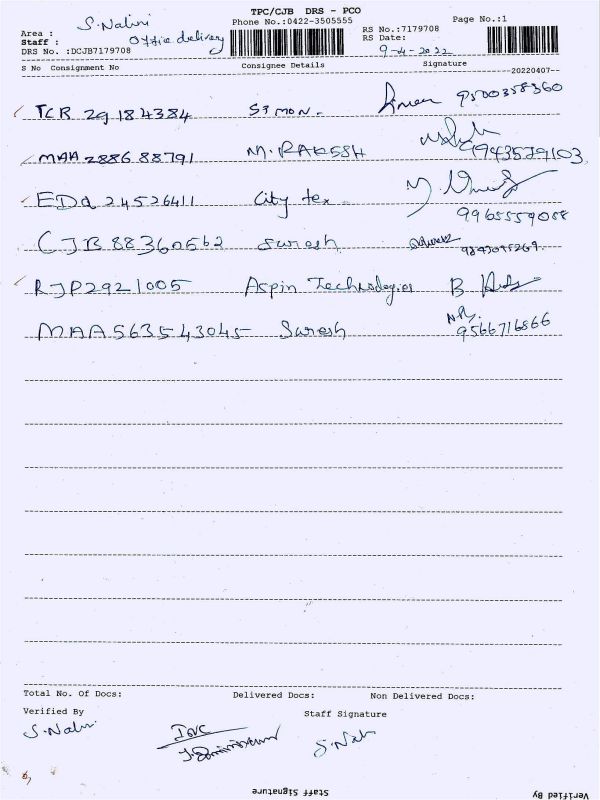 TPC/CJB DRS - PCO
S. Nalini
Phone No.:0422-3505555
Page No.:1
Area :
Staff : Office delivery
RS No.:7179708
RS Date: 9-4-2022
DRS No. :DCJB7179708
S No Consignment No Consignee Details Signature
20220407
TCR 29184384 Simon. 9500358360
MAA 288688791 M. RAKESH 9943529103
EDQ 24526411 City tex 9965559058
CJB 88360562 Suresh
RJP2921005 Aspin Technologies B
MAA563543045 Suresh 9566716866
Total No. Of Docs: Delivered Docs: Non Delivered Docs:
Verified By Staff Signature
S. Nalini
S. Nali
Staff Signature
Verified By